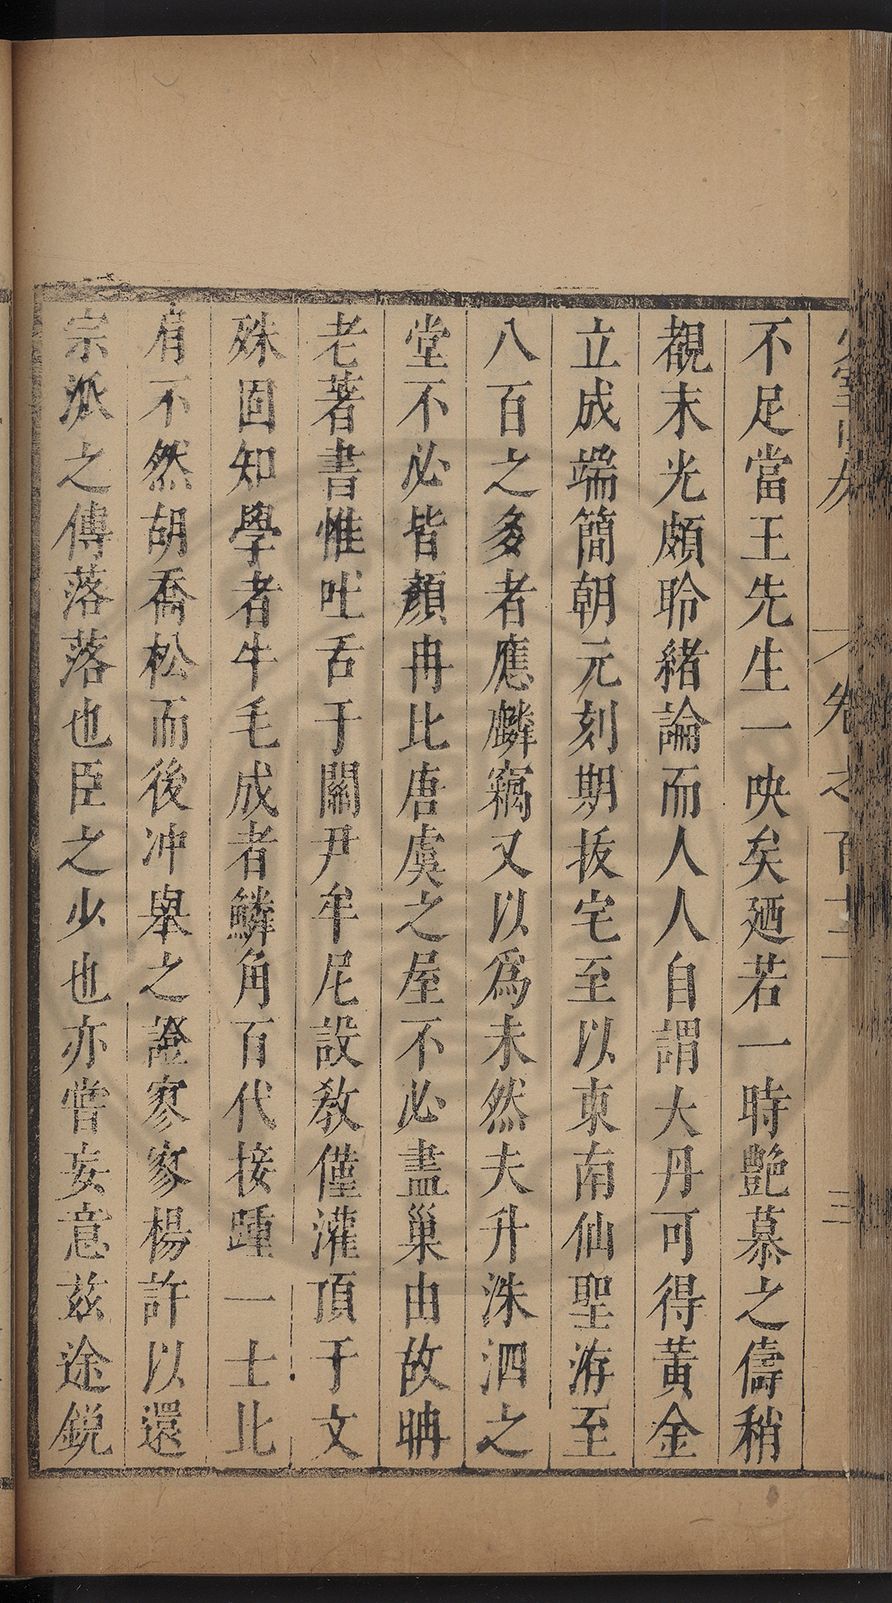 不足當王先生一吷矣廼若一時艶慕之儔稍
覩末光頗聆緒論而人人自謂大丹可得黃金
立成端簡朝元刻期拔宅至以東南仙聖洊至
八百之多者應麟竊又以爲未然夫升洙泗之
堂不必皆顏冉比唐虞之屋不必盡巢由故聃
老著書惟吐舌于關尹牟尼設敎僅灌頂于文
殊固知學者牛毛成者鱗角百代接踵一士比
肩不然胡喬松而後冲舉之證寥寥楊許以還
宗派之傳落落也臣之少也亦嘗妄意兹途銳
卷之百十二
三